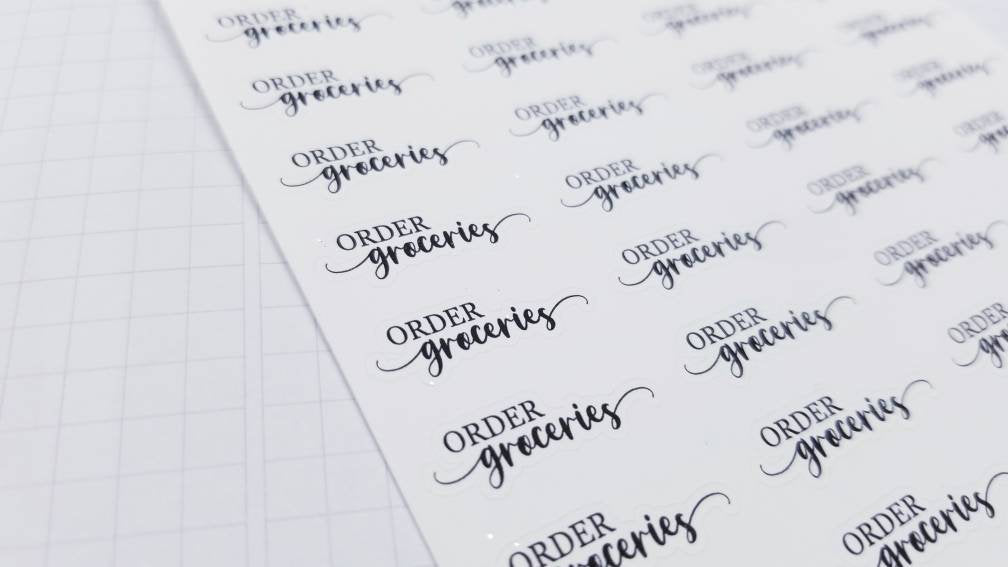 ORDER
groceries
ORDER
groceries
ORDER
groceries
ORDER
groceries
ORDER
groceries
ORDER
groceries
ORDER
groceries
groceries
ORDER
groceries
ORDER
groceries
ORDER
groceries
ORDER
groceries
ORDER
groceries
ORDER
groceries
ORDER
groceries
ORDER
groceries
ORDER
groceries
ORDER
groceries
ORDER
groceries
ORDER
groceries
ORDER
gro
ORDER
groceries
ORDER
groceries
ORDER